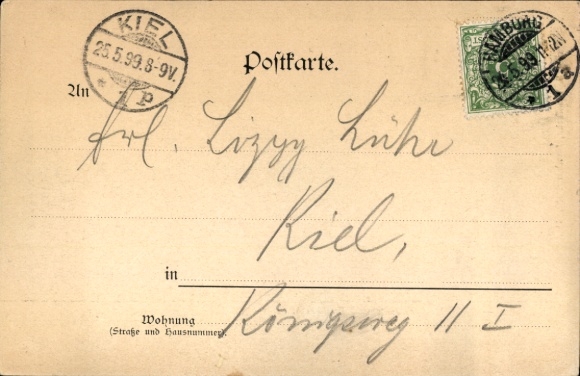 KIEL
25.5.99.8-9V.
* 1 p
Postkarte.
HAMBURG
25.5.99.1-2N
* 1 a
An
Frl. Lizzy Lühr
Kiel,
in
Wohnung
(Straße und Hausnummer).
Königsweg 11 I